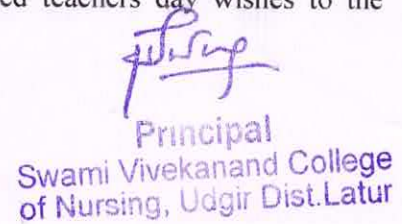 ed teachers day wishes to the
Principal
Swami Vivekanand College
of Nursing, Udgir Dist.Latur